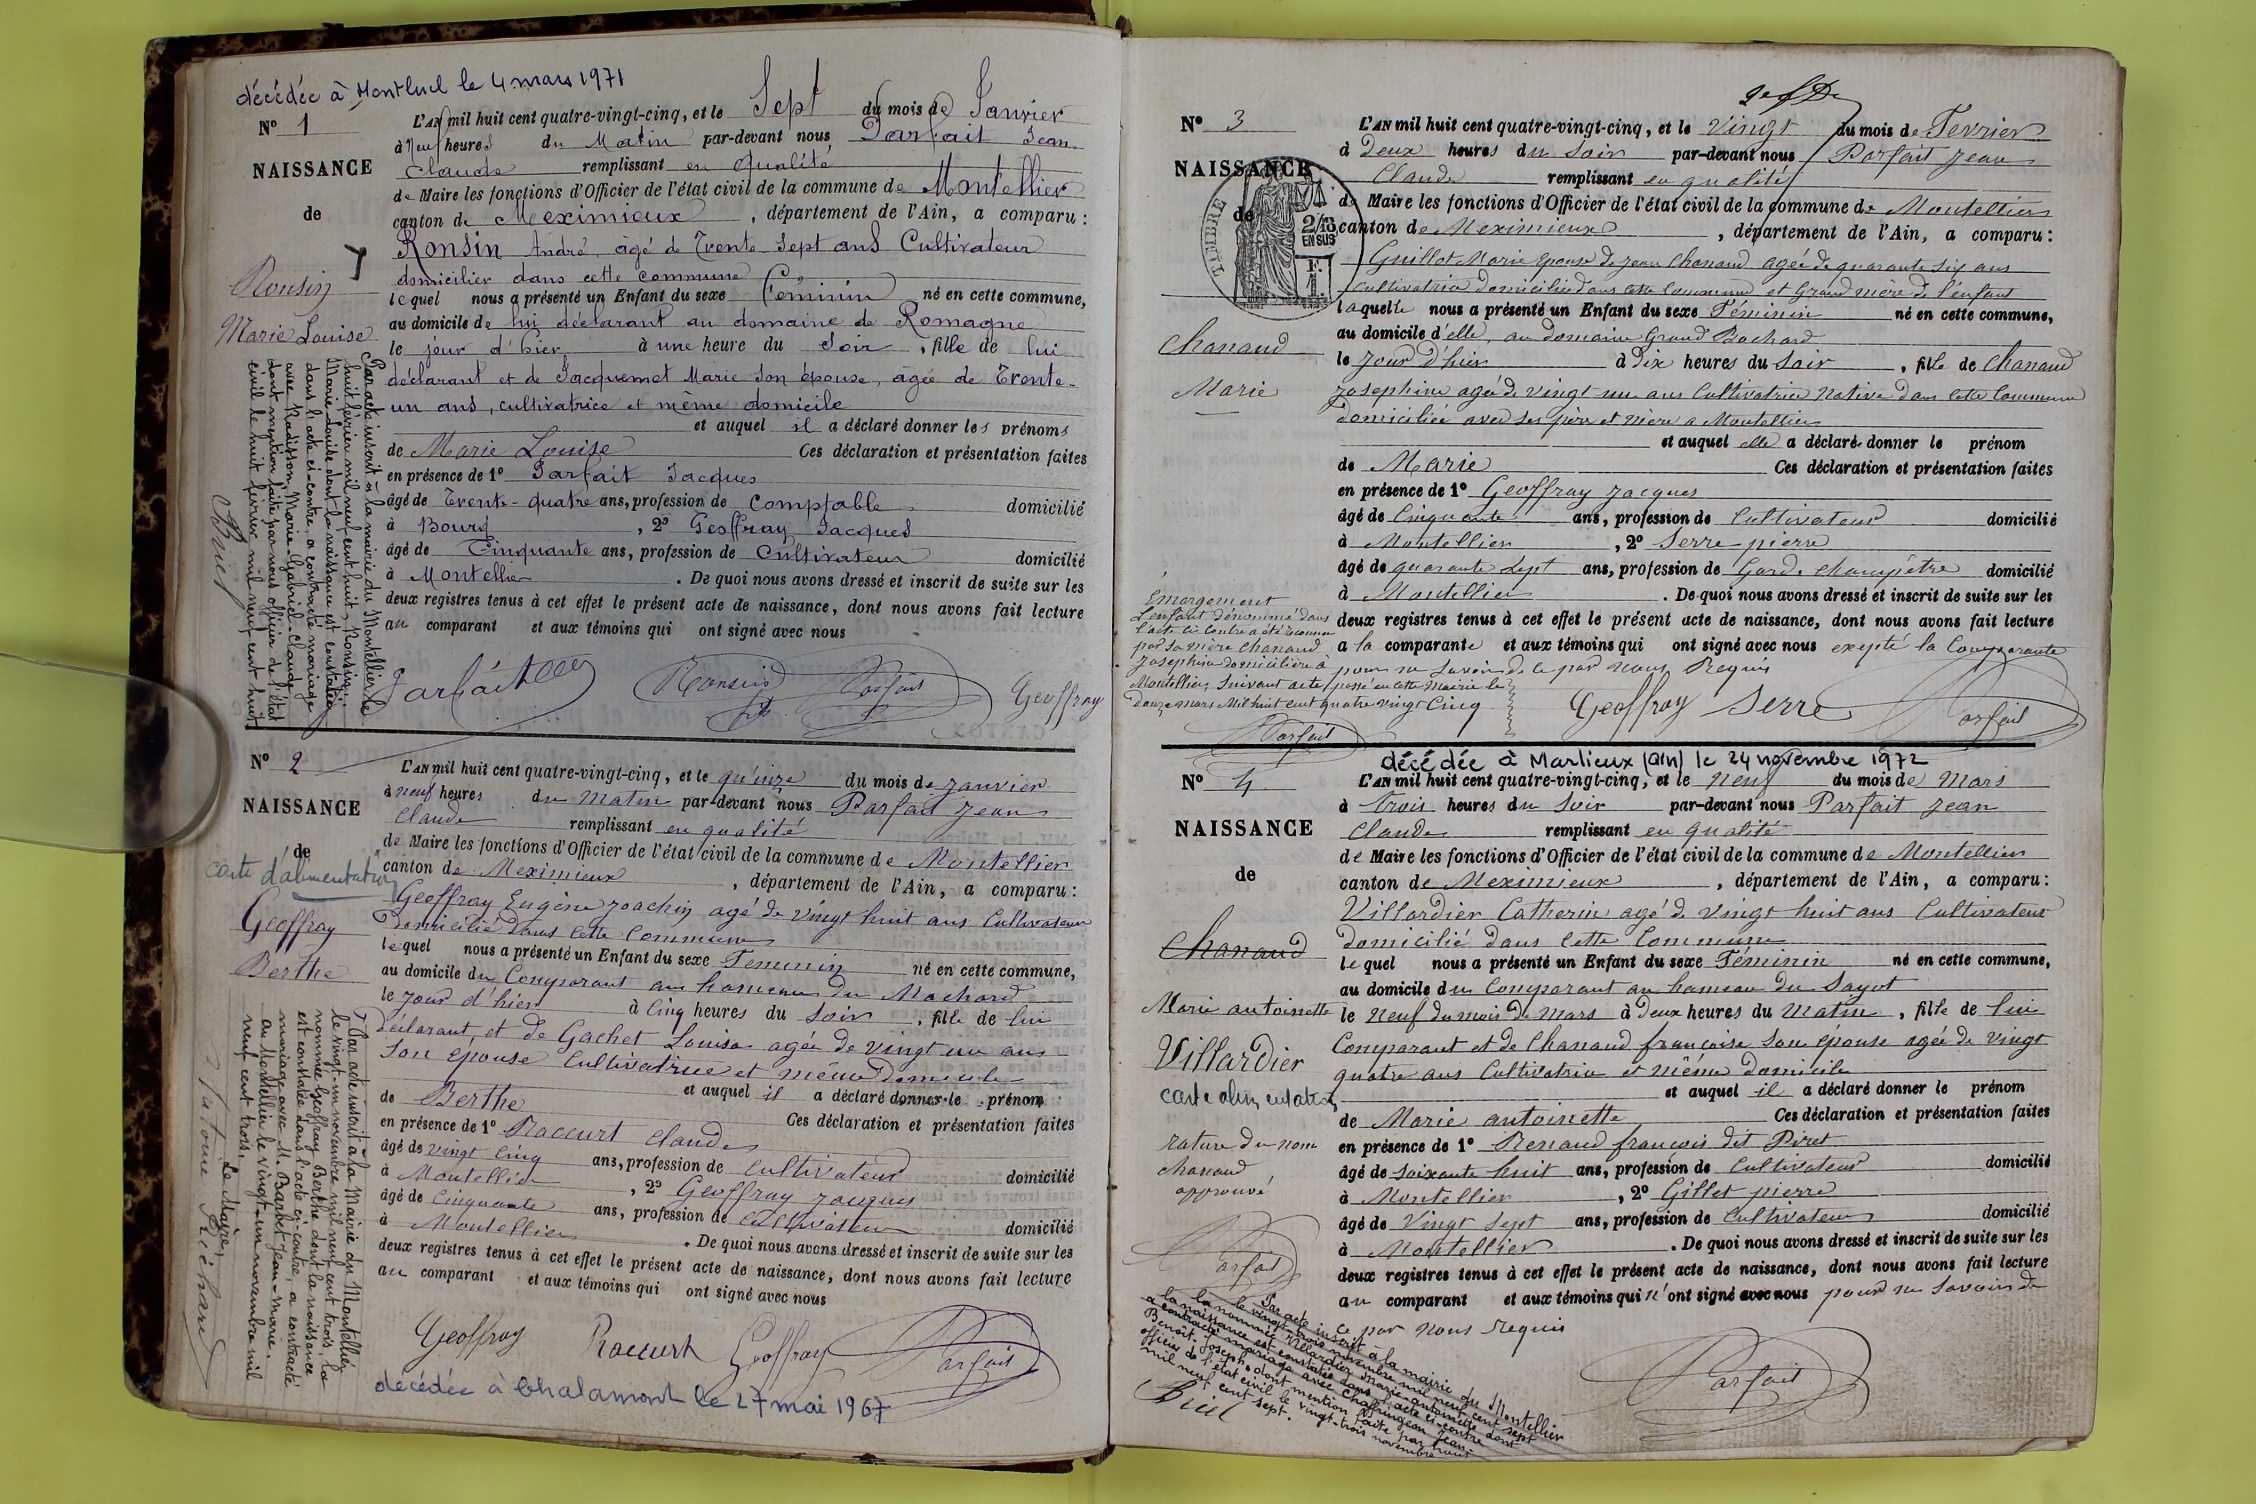 décédée à Montluel le 4 mars 1971
N° 1
NAISSANCE
de
Ronsin
Marie Louise
L'AN mil huit cent quatre-vingt-cinq, et le Sept du mois de Janvier
à Neuf heures du Matin par-devant nous Parfait Jean
Claude remplissant en qualité
de Maire les fonctions d'Officier de l'état civil de la commune de Montellier
canton de Meximieux, département de l'Ain, a comparu :
Ronsin André, âgé de Trente Sept ans Cultivateur
domicilier dans cette commune
lequel nous a présenté un Enfant du sexe Féminin né en cette commune,
au domicile de lui déclarant au domaine de Romagne
le jour d'hier à une heure du Soir, fille de lui
déclarant et de Jacquemet Marie son épouse, âgée de Trente-
un ans, cultivatrice et même domicile
et auquel il a déclaré donner les prénoms
de Marie Louise Ces déclaration et présentation faites
en présence de 1° Parfait Jacques
âgé de Trente-quatre ans, profession de Comptable domicilié
à Bourg, 2° Geoffray Jacques
âgé de Cinquante ans, profession de Cultivateur domicilié
à Montellier. De quoi nous avons dressé et inscrit de suite sur les
deux registres tenus à cet effet le présent acte de naissance, dont nous avons fait lecture
au comparant et aux témoins qui ont signé avec nous
Parfait Ronsin Parfait Geoffray
Par acte inscrit à la mairie du Montellier le
huit février mil neuf cent huit, Ronsin
Marie-Louise dont la naissance est constatée
dans l'acte ci-contre, a contracté mariage
avec Radisson, Marie-Gabriel-Claude,
dont mention faite par nous officier de l'état
civil le huit février mil neuf cent huit
N° 2
NAISSANCE
de
carte d'alimentation
Geoffray
Berthe
L'AN mil huit cent quatre-vingt-cinq, et le quinze du mois de janvier
à neuf heures du Matin par-devant nous Parfait Jean
Claude remplissant en qualité
de Maire les fonctions d'Officier de l'état civil de la commune de Montellier
canton de Meximieux, département de l'Ain, a comparu :
Geoffray Eugène Joachin agé de vingt huit ans Cultivateur
Domicilié dans cette Commune
lequel nous a présenté un Enfant du sexe Féminin né en cette commune,
au domicile du Comparant au hameau du Mochard
le jour d'hier à cinq heures du Soir, fille de lui
déclarant, et de Gachet Louise agée de vingt un ans
Son épouse Cultivatrice et même Domicile
et auquel il a déclaré donner le prénom
de Berthe Ces déclaration et présentation faites
en présence de 1° Raccurt Claude
âgé de vingt cinq ans, profession de Cultivateur domicilié
à Montellier, 2° Geoffray Jacques
âgé de Cinquante ans, profession de Cultivateur domicilié
à Montellier. De quoi nous avons dressé et inscrit de suite sur les
deux registres tenus à cet effet le présent acte de naissance, dont nous avons fait lecture
au comparant et aux témoins qui ont signé avec nous
Geoffray Raccurt Geoffray Parfait
décédée à Chalamont le 27 mai 1967
Par acte inscrit à la Mairie du Montellier
le vingt-un novembre mil neuf cent trois la
nommée Geoffray Berthe dont la naissance
est constatée dans l'acte ci-contre, a contracté
mariage avec M. Barbet Jean-Marie.
au Montellier le vingt-un novembre mil
neuf cent trois.
Le Maire,
N° 3
NAISSANCE
de
TIMBRE
2/10
EN SUS
F.
1
Chanaud
Marie
L'AN mil huit cent quatre-vingt-cinq, et le vingt du mois de Fevrier
à Deux heures du Soir par-devant nous Parfait Jean
Claude remplissant en qualité
de Maire les fonctions d'Officier de l'état civil de la commune de Montellier
canton de Meximieux, département de l'Ain, a comparu :
Guillot Marie épouse de Jean Chanaud agée de quarante six ans
Cultivatrice Domiciliée dans cette Commune et Grand mère de l'enfant
laquelle nous a présenté un Enfant du sexe Féminin né en cette commune,
au domicile d'elle, au domaine Grand Bochard
le jour d'hier à Dix heures du Soir, fille de Chanaud
Josephine agée de vingt un ans Cultivatrice Native dans cette Commune
domiciliée avec ses père et mère a Montellier
et auquel elle a déclaré donner le prénom
de Marie Ces déclaration et présentation faites
en présence de 1° Geoffray Jacques
âgé de Cinquante ans, profession de Cultivateur domicilié
à Montellier, 2° Serre pierre
âgé de quarante Sept ans, profession de Garde champêtre domicilié
à Montellier. De quoi nous avons dressé et inscrit de suite sur les
deux registres tenus à cet effet le présent acte de naissance, dont nous avons fait lecture
a la comparante et aux témoins qui ont signé avec nous excepté la Comparante
pour ne savoir de ce par nous Requis
Geoffray Serre Parfait
Emargement
L'enfant dénommé dans
l'acte ci contre a été reconnu
par sa mère Chanaud
Josephine domiciliée à
Montellier, Suivant acte passé en cette Mairie le
douze mars Mil huit cent quatre vingt Cinq
Parfait
décédée à Marlieux (ain) le 24 novembre 1972
N° 4
NAISSANCE
de
Chanaud
Marie antoinette
Villardier
carte alimentation
rature du nom
chanaud
approuvé
Parfait
L'AN mil huit cent quatre-vingt-cinq, et le Neuf du mois de Mars
à trois heures du Soir par-devant nous Parfait Jean
Claude remplissant en qualité
de Maire les fonctions d'Officier de l'état civil de la commune de Montellier
canton de Meximieux, département de l'Ain, a comparu :
Villardier Catherin agé de vingt huit ans Cultivateur
domicilié dans cette Commune
lequel nous a présenté un Enfant du sexe Féminin né en cette commune,
au domicile du Comparant au hameau du Sayot
le Neuf du mois de Mars à Deux heures du Matin, fille de lui
Comparant et de Chanaud françoise son épouse agée de vingt
quatre ans Cultivatrice et même domicile
et auquel il a déclaré donner le prénom
de Marie antoinette Ces déclaration et présentation faites
en présence de 1° Renaud françois dit Piret
âgé de Soixante huit ans, profession de Cultivateur domicilié
à Montellier, 2° Gillet pierre
âgé de Vingt Sept ans, profession de Cultivateur domicilié
à Montellier. De quoi nous avons dressé et inscrit de suite sur les
deux registres tenus à cet effet le présent acte de naissance, dont nous avons fait lecture
au comparant et aux témoins qui n'ont signé avec nous pour ne Savoir de
ce par nous requis
Parfait
Par acte inscrit à la mairie du Montellier
le vingt-trois novembre mil neuf cent sept
la nommée Villardier Marie-antoinette dont
la naissance est constatée dans l'acte ci-contre
a contracté mariage avec Jean-
Benoît-Joseph, dont mention faite par nous
officier de l'état civil le vingt-trois novembre
mil neuf cent sept.